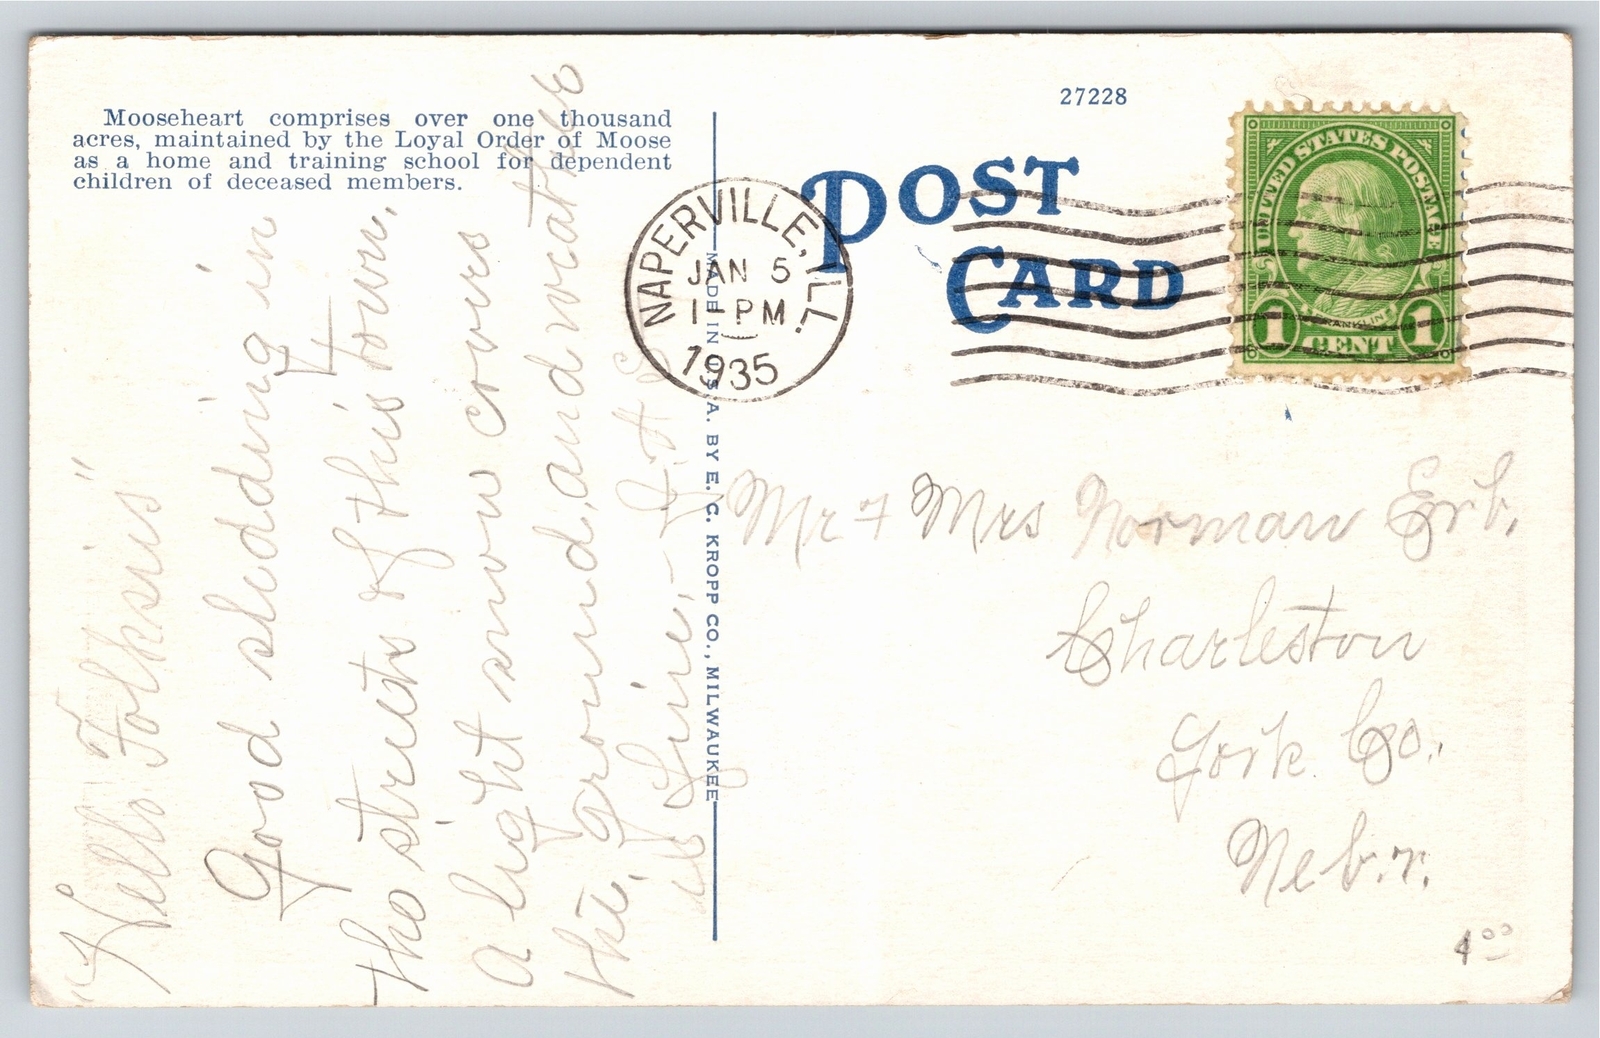 Mooseheart comprises over one thousand
acres, maintained by the Loyal Order of Moose
as a home and training school for dependent
children of deceased members.
27228
POST
CARD
NAPERVILLE, ILL.
JAN 5
1-PM
1935
UNITED STATES POSTAGE
FRANKLIN
1 CENT 1
MADE IN U.S.A. BY E. C. KROPP CO., MILWAUKEE
"Hello Folksis"
Good sledding in
the streets of this town.
A light snow covers
the ground, and weather
is fine, -
Mr + Mrs Norman Erb.
Charleston
York Co.
Nebr.
4.00